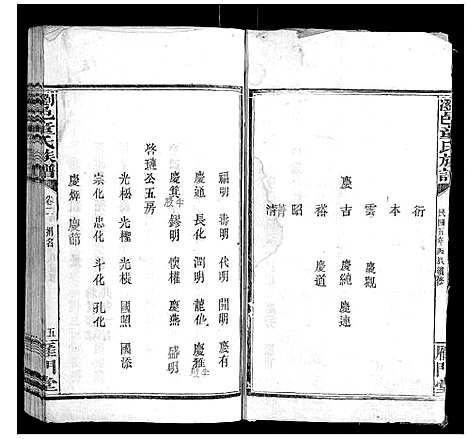 瀏邑童氏族譜
民國五年丙辰續修
雁門堂
衍
本
雲 慶觀
慶吉 慶純 慶連
裕 慶道
昭
菁
清
福明 壽明 代明 開明 慶有
慶通 長化 潤明 龍化 慶雅
慶箕 鏐明 懷權 慶燕 盛明
啓璉公五房
光松 光檉 光棪 國照 國添
崇化 忠化 斗化 孔化
慶爍 慶節
瀏邑童氏族譜
卷二
五
雁門堂